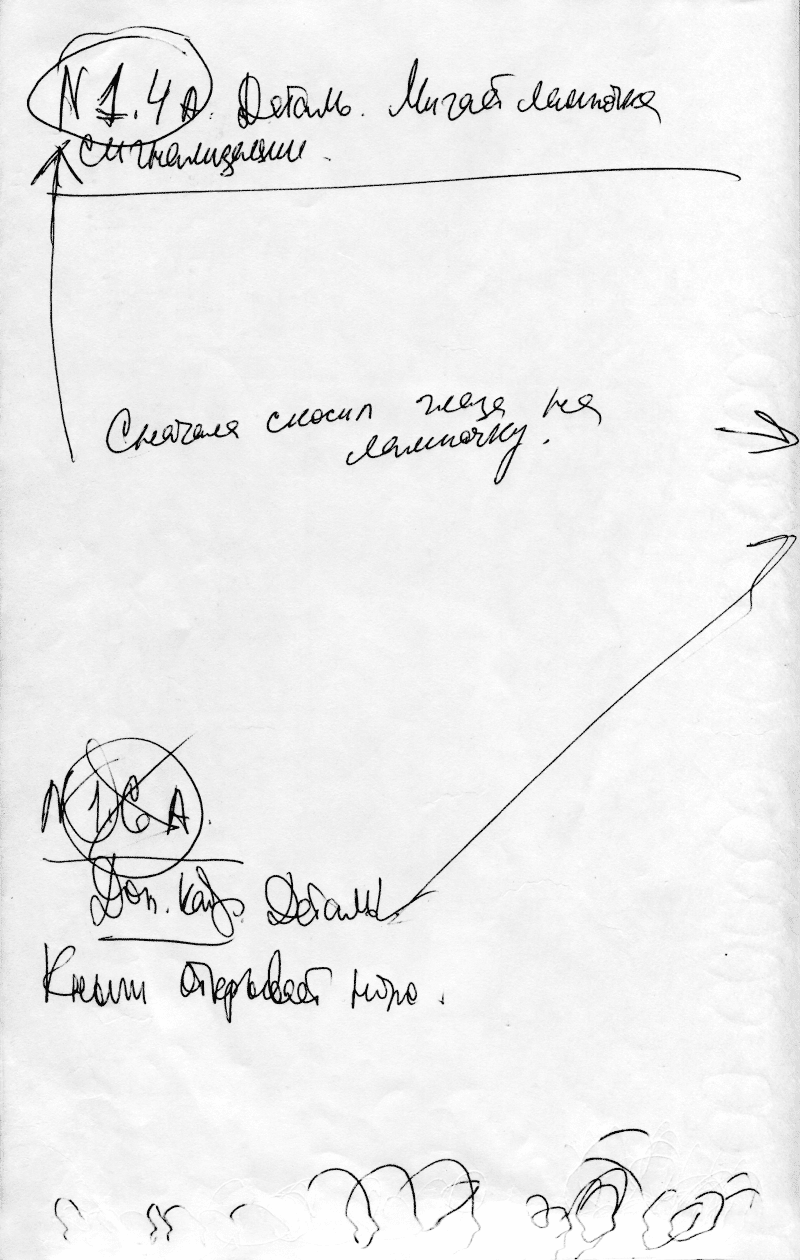 N 1.4 А. Деталь. Мигает лампочка
сигнализации.
Сначала скосил глаза на
лампочку.
N 1.6 А.
Доп. кадр. Деталь.
Кныш открывает